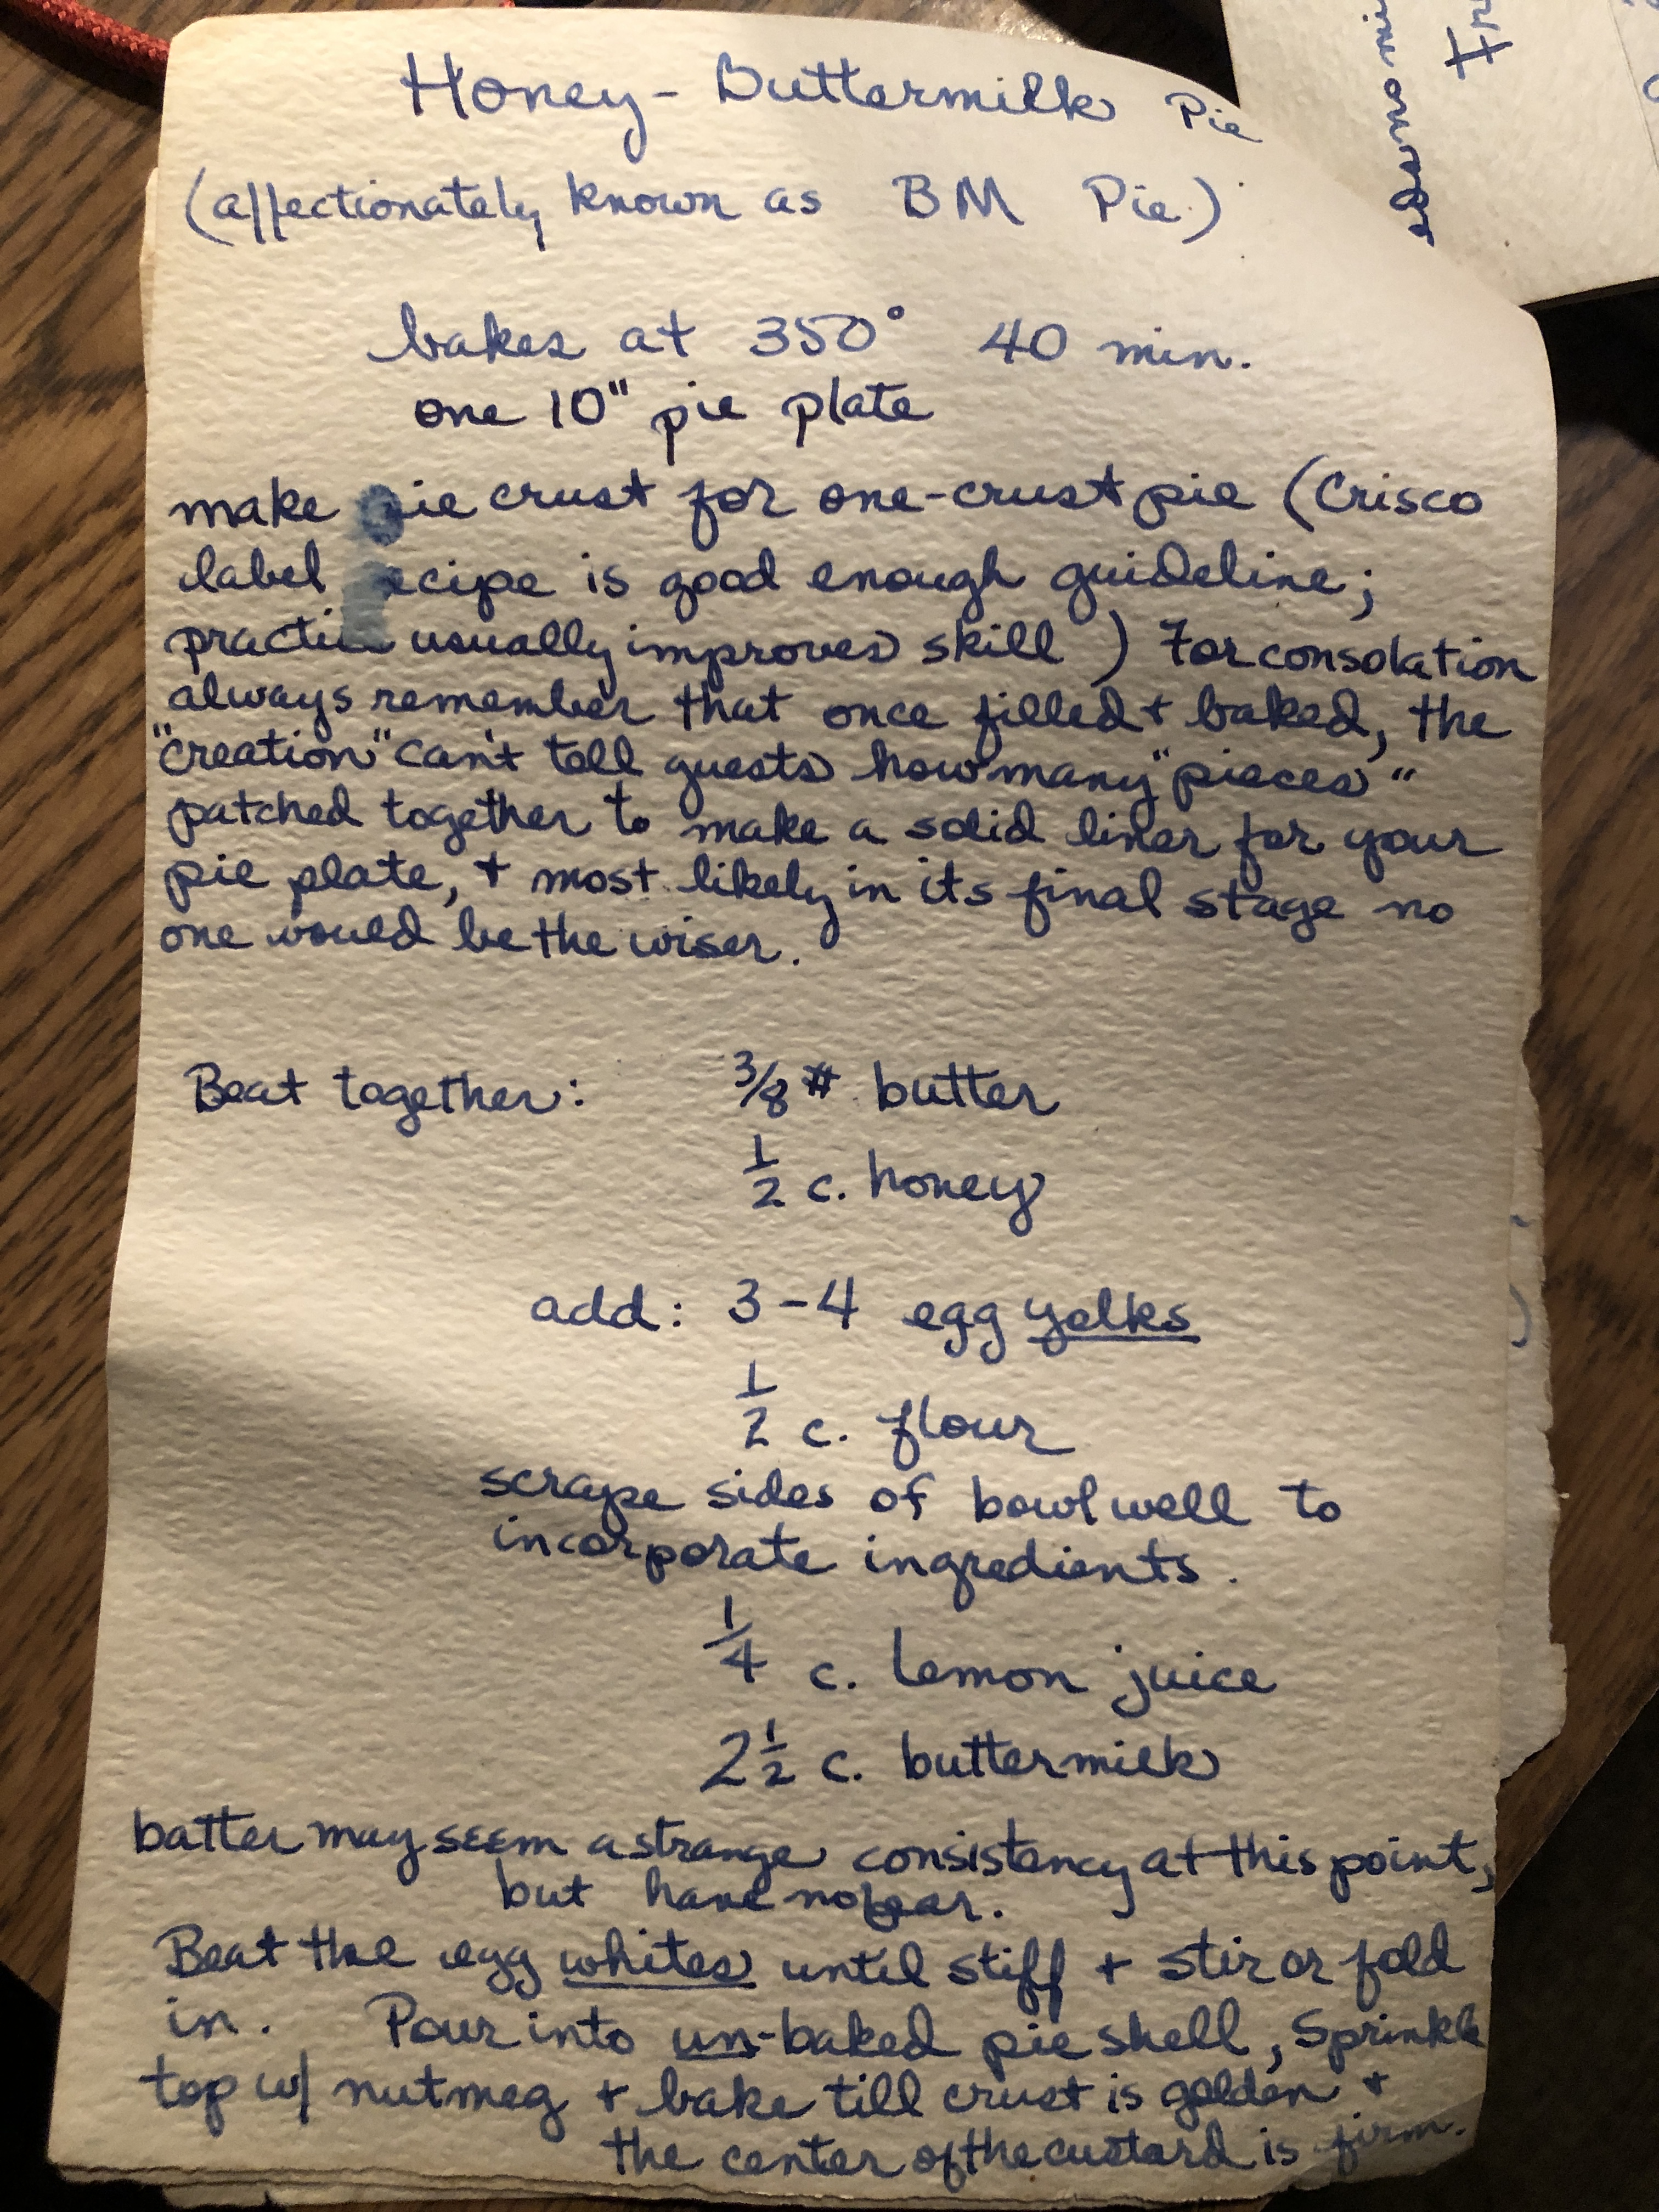 Honey - Buttermilk Pie
(affectionately known as BM Pie.)
bakes at 350° 40 min.
one 10" pie plate
make pie crust for one-crust pie (Crisco
label recipe is good enough guideline;
practice usually improves skill) For consolation
always remember that once filled + baked, the
"creation" can't tell guests how many "pieces"
patched together to make a solid liner for your
pie plate, + most likely in its final stage no
one would be the wiser.
Beat together: 3/8 # butter
1/2 c. honey
add: 3-4 egg yolks
1/2 c. flour
scrape sides of bowl well to
incorporate ingredients.
1/4 c. lemon juice
2 1/2 c. buttermilk
batter may seem a strange consistency at this point,
but have no fear.
Beat the egg whites until stiff + stir or fold
in. Pour into un-baked pie shell, sprinkle
top w/ nutmeg + bake till crust is golden +
the center of the custard is firm.